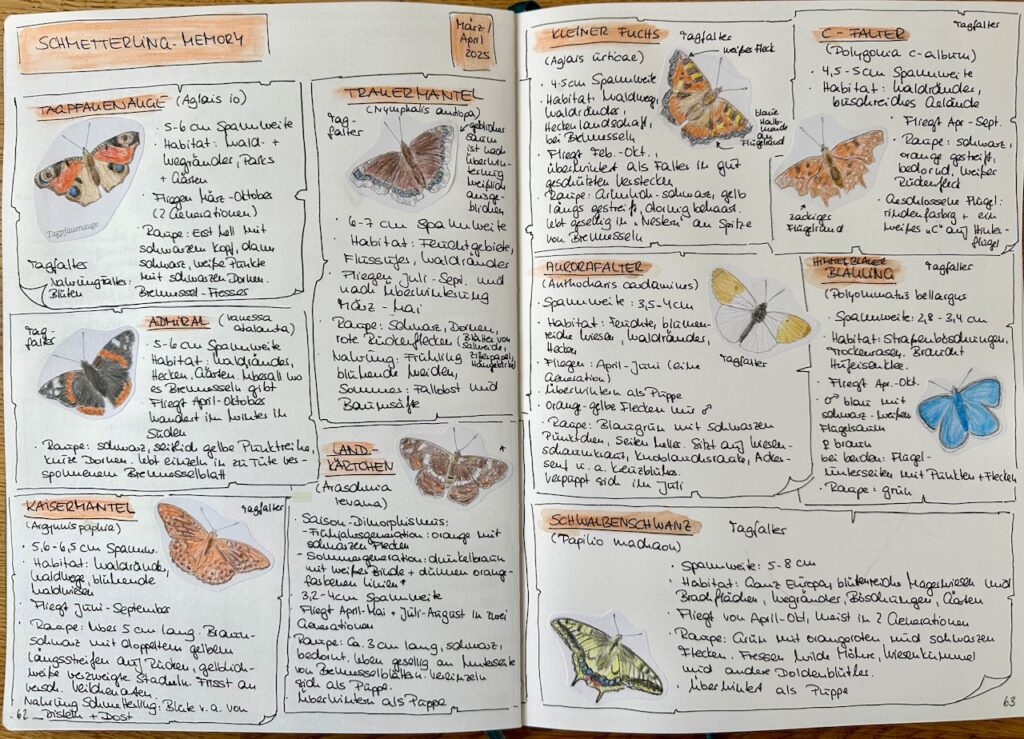 SCHMETTERLING-MEMORY
März/
April
2025
TAGPFAUENAUGE (Aglais io)
• 5-6 cm Spannweite
• Habitat: Wald- +
Wegränder, Parks
+ Gärten
• Fliegen März-Oktober
(2 Generationen)
• Raupe: Erst hell mit
schwarzem Kopf, dann
schwarz, weiße Punkte
mit schwarzen Dornen.
Brennessel-Fresser
Tagpfauenauge
Tagfalter
Nahrung Falter:
Blüten
ADMIRAL (Vanessa
atalanta)
Tag-
falter
• 5-6 cm Spannweite
• Habitat: Waldränder,
Hecken, Gärten. Überall wo
es Brennesseln gibt
• Fliegt April-Oktober
Wandert im Winter in
Süden
• Raupe: schwarz, seitlich gelbe Punktreihe,
kurze Dornen. Lebt einzeln in zu Tüte ver-
sponnenem Brennesselblatt
KAISERMANTEL
(Argynnis paphia)
Tagfalter
• 5,6-6,5 cm Spannw.
• Habitat: Waldränder,
Waldwege, blühende
Waldwiesen
• Fliegt Juni-September
• Raupe: Über 5 cm lang. Braun-
schwarz mit doppeltem gelbem
Längsstreifen auf Rücken, gelblich-
weiße verzweigte Stacheln. Frisst an
versch. Veilchenarten.
Nahrung Schmetterling: Blüte v.a. von
Disteln + Dost
62
TRAUERMANTEL
(Nymphalis antiopa)
Tag-
falter
gelblicher
Saum
ist nach
Überwin-
terung
weißlich
ausge-
blichen
• 6-7 cm Spannweite
• Habitat: Feuchtgebiete,
Flussufer, Waldränder
• Fliegen Juli-Sept. und
nach Überwinterung
März-Mai
• Raupe: Schwarz, Dornen,
rote Rückenflecken (Blätter von
Salweide,
Zitterpappel,
Hängebirke)
• Nahrung: Frühling
blühende Weiden,
Sommer: Fallobst und
Baumsäfte
LAND-
KÄRTCHEN
(Araschnia
levana)
*
• Saison-Dimorphismus:
- Frühjahrsgeneration: orange mit
schwarzen Flecken
- Sommergeneration: dunkelbraun
mit weißer Binde + dünnen orange-
farbenen Linien *
• 3,2-4 cm Spannweite
• Fliegt April-Mai + Juli-August in zwei
Generationen
• Raupe: Ca. 3 cm lang, schwarz,
bedornt. Leben gesellig an Unterseite
von Brennesselblättern. Vereinzeln
sich als Puppe.
• Überwintern als Puppe
KLEINER FUCHS
Tagfalter
(Aglais urticae)
weißer Fleck
blaue
Halb-
monde
am
Flügelrand
• 4-5 cm Spannweite
• Habitat: Waldwege,
Waldränder,
Heckenlandschaft,
bei Brennesseln
• Fliegt Feb.-Okt.,
überwintert als Falter in gut
geschützten Verstecken
• Raupe: Grünlich-schwarz, gelb
längs gestreift, dornig behaart.
Lebt gesellig in "Nestern" an Spitze
von Brennesseln
C-FALTER
Tagfalter
(Polygonia c-album)
• 4,5-5 cm Spannweite
• Habitat: Waldränder,
buschreiches Gelände
• Fliegt Apr-Sept.
• Raupe: schwarz,
orange gestreift,
bedornt, weißer
Rückenfleck
• Geschlossene Flügel:
rindenfarbig + ein
weißes "C" auf Hinter-
flügel
zackiger
Flügelrand
AURORAFALTER
(Anthocharis cardamines)
• Spannweite: 3,5-4 cm
• Habitat: Feuchte, blumen-
reiche Wiesen, Waldränder,
Hecken
• Fliegen: April-Juni (eine
Generation)
• Überwintern als Puppe
• Orange-gelbe Flecken nur ♂
• Raupe: Blaugrün mit schwarzen
Pünktchen, Seiten heller. Sitzt auf Wiesen-
schaumkraut, Knoblauchsrauke, Acker-
senf u.a. Kreuzblüher.
Verpuppt sich im Juli
Tagfalter
HIMMELBLAUER
BLÄULING
Tagfalter
(Polyommatus bellargus
• Spannweite: 2,8-3,4 cm
• Habitat: Straßenböschungen,
Trockenrasen. Braucht
Hufeisenklee.
• Fliegt Apr.-Okt.
• ♂ blau mit
schwarz-weißem
Flügelsaum
♀ braun
bei beiden: Flügel-
unterseiten mit Punkten + Flecken
• Raupe: grün
SCHWALBENSCHWANZ
Tagfalter
(Papilio machaon)
• Spannweite: 5-8 cm
• Habitat: Ganz Europa, blütenreiche Magerwiesen und
Brachflächen, Wegränder, Böschungen, Gärten
• Fliegt von April-Okt, meist in 2 Generationen
• Raupe: Grün mit orangeroten und schwarzen
Flecken. Fressen wilde Möhre, Wiesenkümmel
und andere Doldenblütler.
• Überwintert als Puppe
63